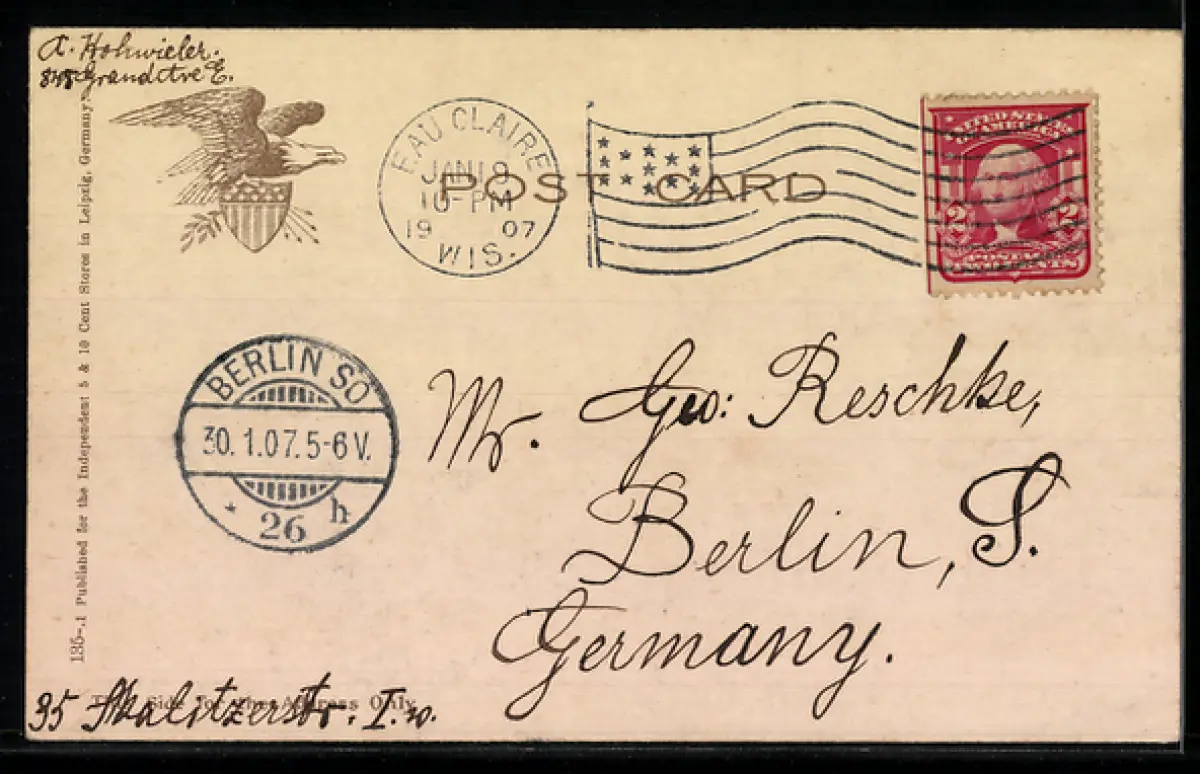 A. Hohwieler.
845 Grand Ave E.
EAU CLAIRE
JAN 18
10-PM
19 07
WIS.
POST CARD
UNITED STATES OF AMERICA
2 2
POSTAGE
TWO CENTS
BERLIN SO
30.1.07.5-6 V.
* 26 h
Mr. Geo: Reschke,
Berlin, S.
Germany.
135-.1 Published for the Independent 5 & 10 Cent Stores in Leipzig, Germany.
This Side for the Address Only.
35 Skalitzerstr. I. w.